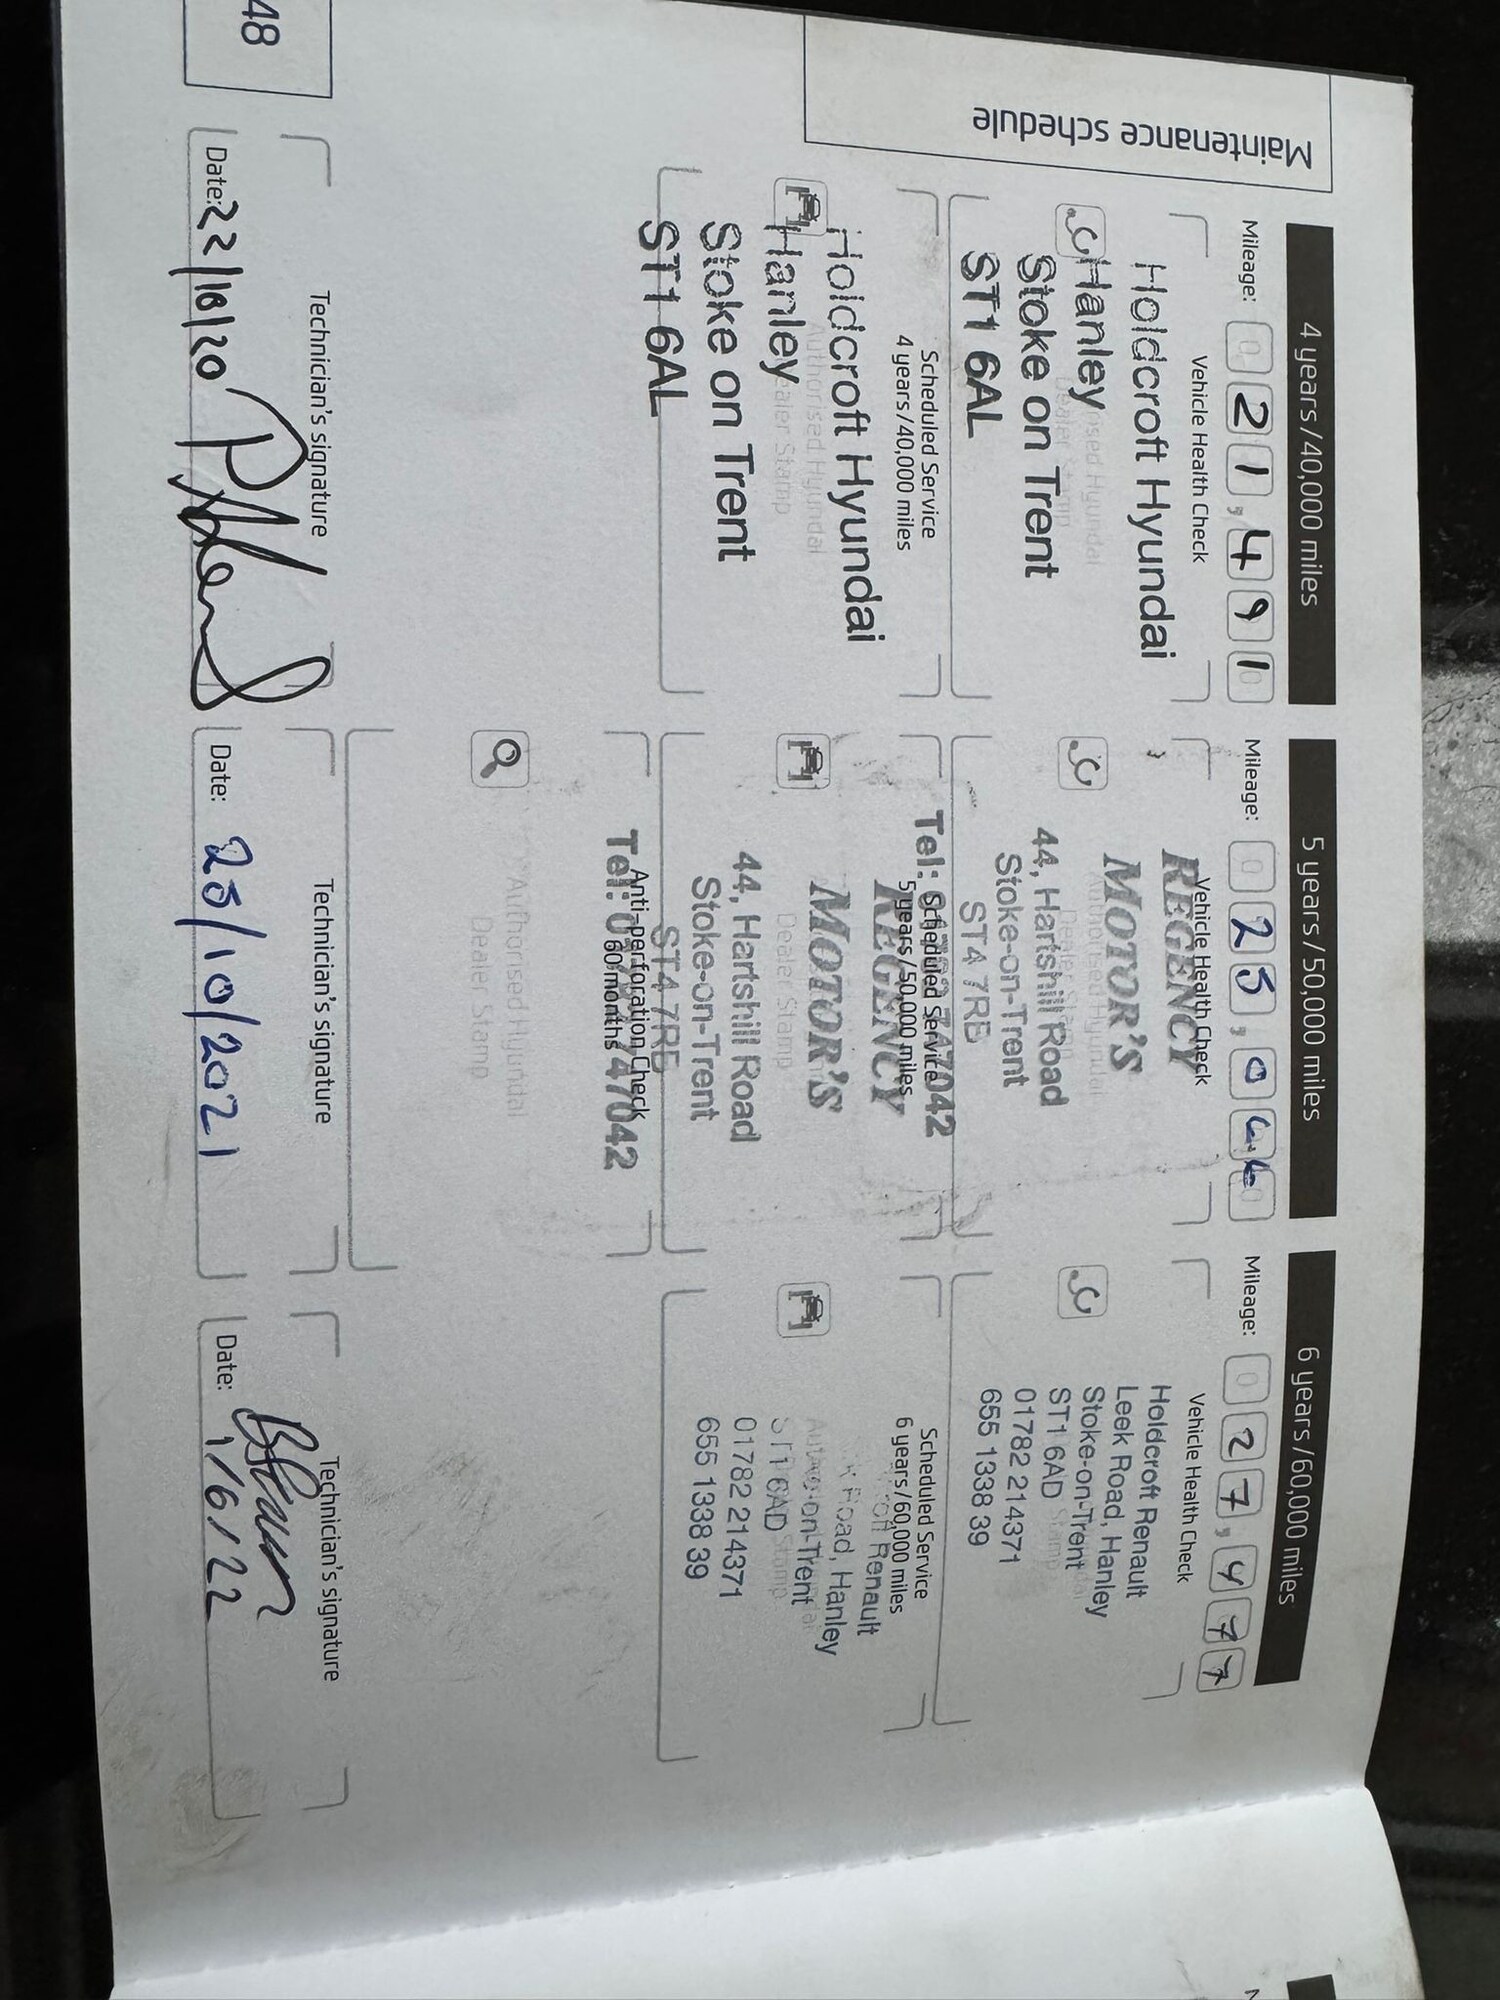 Maintenance schedule
4 years/40,000 miles
Mileage: 0 2 1 , 4 9 1
Vehicle Health Check
Holdcroft Hyundai
Hanley
Stoke on Trent
ST1 6AL
Scheduled Service
4 years/40,000 miles
Holdcroft Hyundai
Authorised Hyundai
Hanley
Dealer Stamp
Stoke on Trent
ST1 6AL
Technician's signature
Date: 22/10/20
5 years/50,000 miles
Mileage: 0 2 5 , 0
Vehicle Health Check
REGENCY
MOTOR'S
Authorised Hyundai
Dealer Stamp
44, Hartshill Road
Stoke-on-Trent
ST4 7RE
Tel: 01782 747042
Scheduled Service
5 years/50,000 miles
REGENCY
MOTOR'S
Dealer Stamp
44, Hartshill Road
Stoke-on-Trent
ST4 7RE
Anti-perforation Check
60 months
Tel: 01782 747042
Authorised Hyundai
Dealer Stamp
Technician's signature
Date: 25/10/2021
6 years/60,000 miles
Mileage: 0 2 7 , 4 7 7
Vehicle Health Check
Holdcroft Renault
Leek Road, Hanley
Stoke-on-Trent
Stamp
ST1 6AD
01782 214371
655 1338 39
Scheduled Service
6 years/60,000 miles
Renault
Road, Hanley
on-Trent
ST1 6AD
Stamp
01782 214371
655 1338 39
Technician's signature
Date: 1/6/22
48